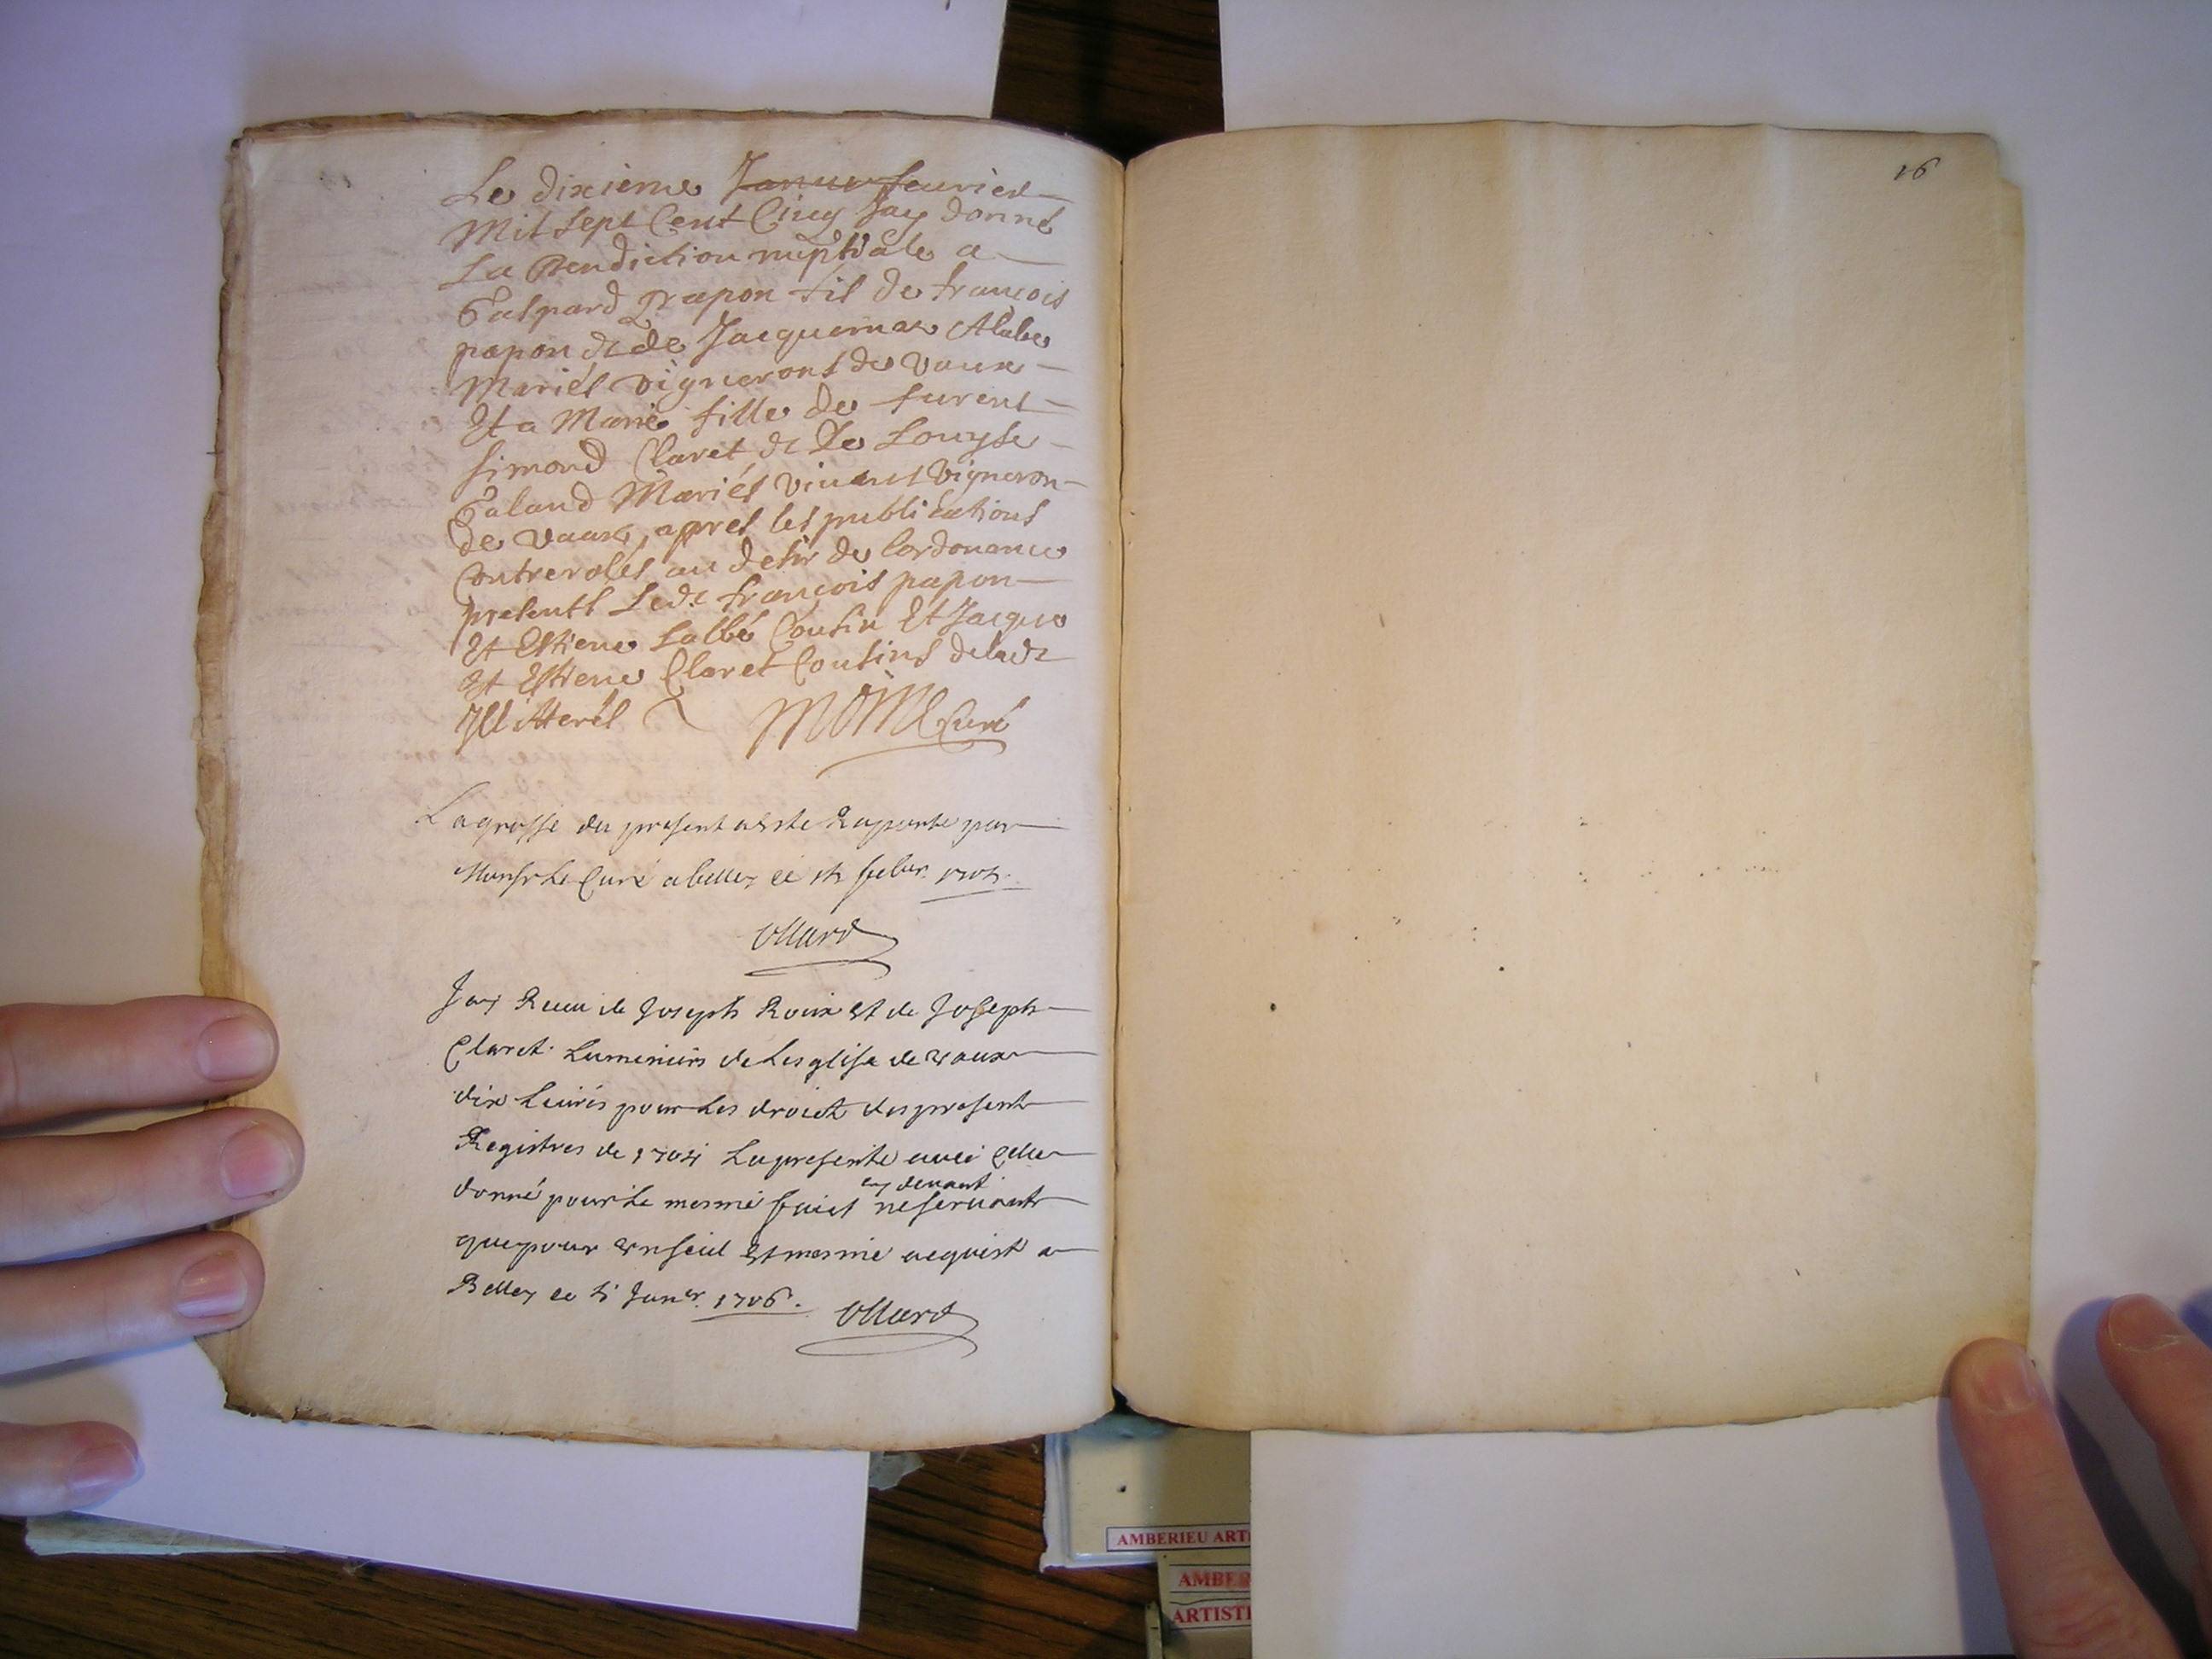 Le dixieme Januier feurier
Mil sept Cent Cinq Jay donné
La Benediction nuptiale a
Gaspard Papon fil de francois
papon & de Jacquema Alabe
Mariés vignerons de vaux
Et a Marie fille de furent
Simond Claret & de Louyse
Galand Mariés viuans vigneron
de vaux, apres les publications
Controrolés au desir de lordonance
presents Led.t francois papon
Et Estiene Labbé Cousin Et Jacque
Et Estiene Claret Cousins delad.te
Illiterés MOINE Curé
La grosse du present acste Raporte par
Monsr Le Curé a belley ce febur. 1705.
Ollard
Jay Receu de Joseph Roux Et de Joseph
Claret Lumeniers de Lesglise de vaux
dix Liures pour Les droict des present
Registres de 1704 La presente auec Celle
cy deuant
donné pour Le mesme faict ne seruant
que pour vn seul Et mesme acquist a
Belley ce 5 Janer. 1706. Ollard
16
AMBERIEU ART
AMBER
ARTIST